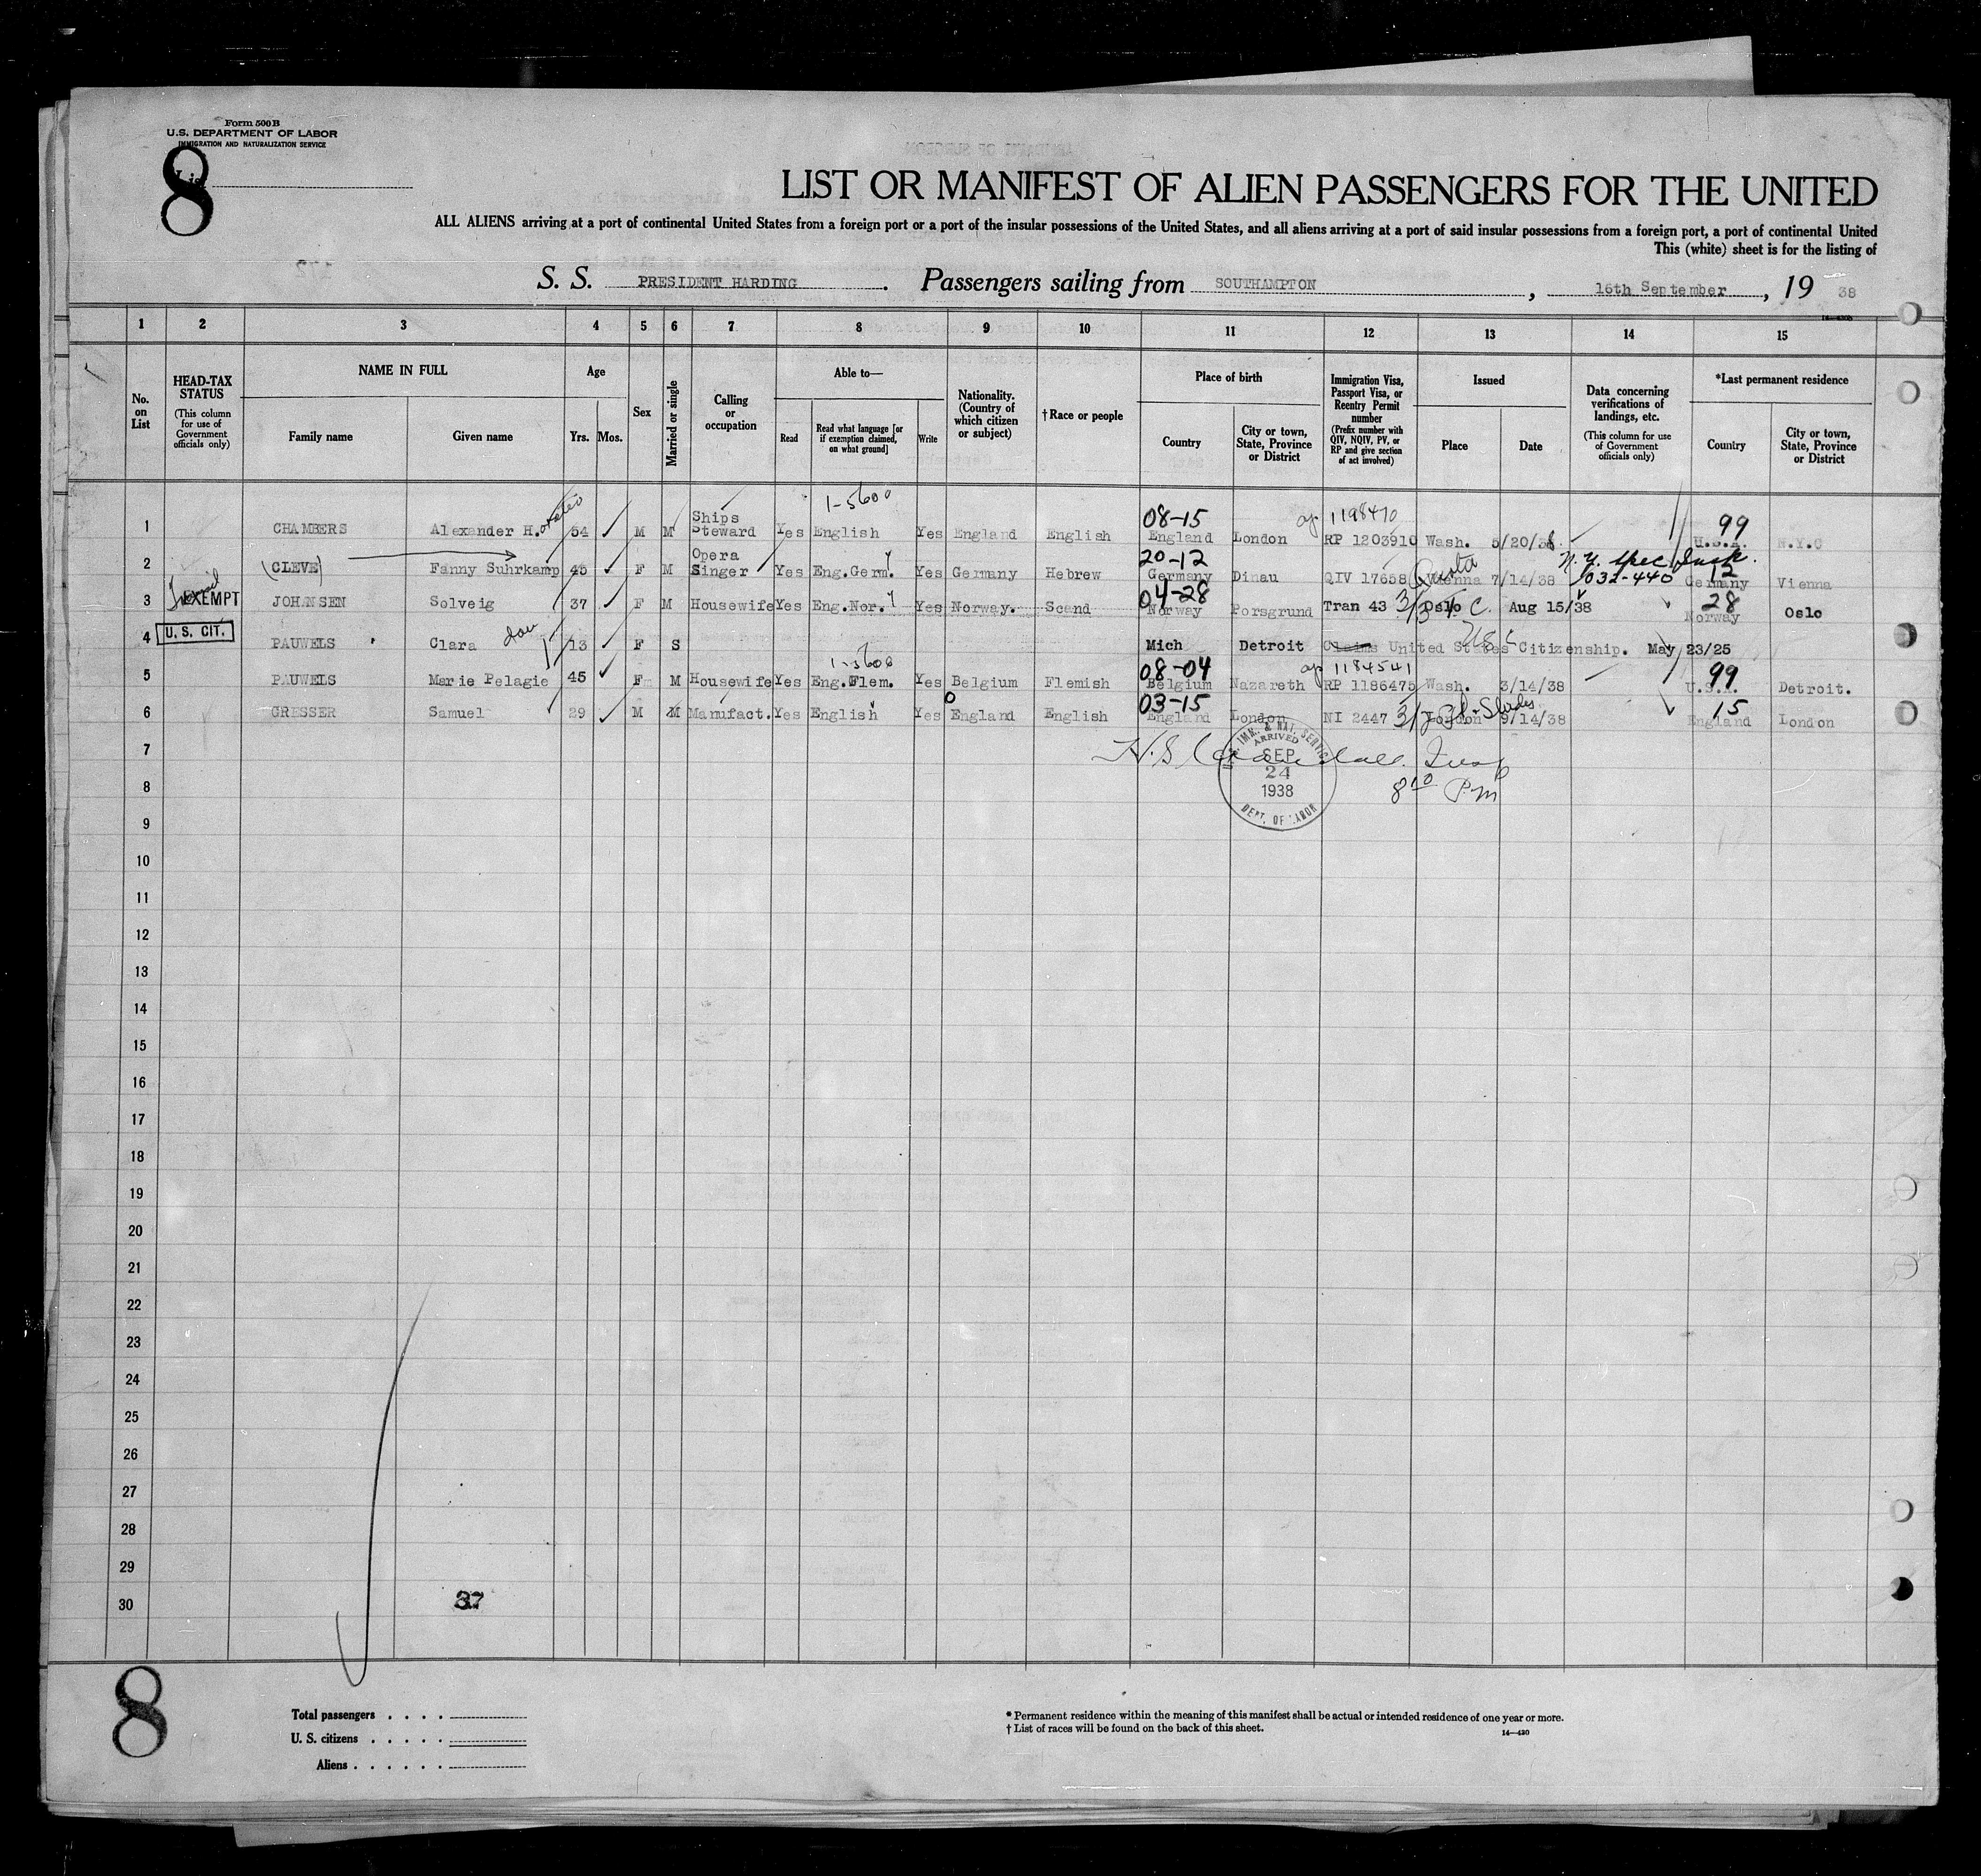 Form 500 B
U.S. DEPARTMENT OF LABOR
IMMIGRATION AND NATURALIZATION SERVICE
8
List
LIST OR MANIFEST OF ALIEN PASSENGERS FOR THE UNITED
ALL ALIENS arriving at a port of continental United States from a foreign port or a port of the insular possessions of the United States, and all aliens arriving at a port of said insular possessions from a foreign port, a port of continental United
This (white) sheet is for the listing of
S. S. PRESIDENT HARDING. Passengers sailing from SOUTHAMPTON, 16th September, 19 38
1 2 3 4 5 6 7 8 9 10 11 12 13 14 15
No. on List
HEAD-TAX STATUS (This column for use of Government officials only)
NAME IN FULL
Family name
Given name
Age
Yrs. Mos.
Sex
Married or single
Calling or occupation
Able to—
Read
Read what language [or if exemption claimed, on what ground]
Write
Nationality. (Country of which citizen or subject)
† Race or people
Place of birth
Country
City or town, State, Province or District
Immigration Visa, Passport Visa, or Reentry Permit number (Prefix number with QIV, NQIV, PV, or RP and give section of act involved)
Issued
Place
Date
Data concerning verifications of landings, etc. (This column for use of Government officials only)
*Last permanent residence
Country
City or town, State, Province or District
1-5600
08-15 1198470 99
1 CHAMBERS Alexander H. 54 M M Ships Steward Yes English Yes England English England London RP 1203910 Wash. 5/20/38 U.S.A. N.Y.C
20-12 Quota N.Y. Spec Insp. 1032-440 12
2 (CLEVE) Fanny Suhrkamp 45 F M Opera Singer Yes Eng.Germ. Yes Germany Hebrew Germany Dinau QIV 17658 Vienna 7/14/38 Germany Vienna
04-28 28
3 EXEMPT JOHANSEN Solveig 37 F M Housewife Yes Eng.Nor. Yes Norway. Scand Norway Porsgrund Tran 43 Oslo Aug 15/38 Norway Oslo
4 U. S. CIT. PAUWELS Clara 13 F S Mich Detroit Claims United States Citizenship. May 23/25
1-5600
08-04 1184541 99
5 PAUWELS Marie Pelagie 45 F M Housewife Yes Eng.Flem. Yes Belgium Flemish Belgium Nazareth RP 1186475 Wash. 3/14/38 U.S.A. Detroit.
03-15 15
6 GRESSER Samuel 29 M M Manufact. Yes English Yes England English England London NI 2447 London 9/14/38 England London
7
IMM. & NAT. SERVICE
ARRIVED
SEP
24
1938
DEPT. OF LABOR
8 10 P.m
8
9
10
11
12
13
14
15
16
17
18
19
20
21
22
23
24
25
26
27
28
29
30
37
8
Total passengers
U. S. citizens
Aliens
* Permanent residence within the meaning of this manifest shall be actual or intended residence of one year or more.
† List of races will be found on the back of this sheet.
14—430